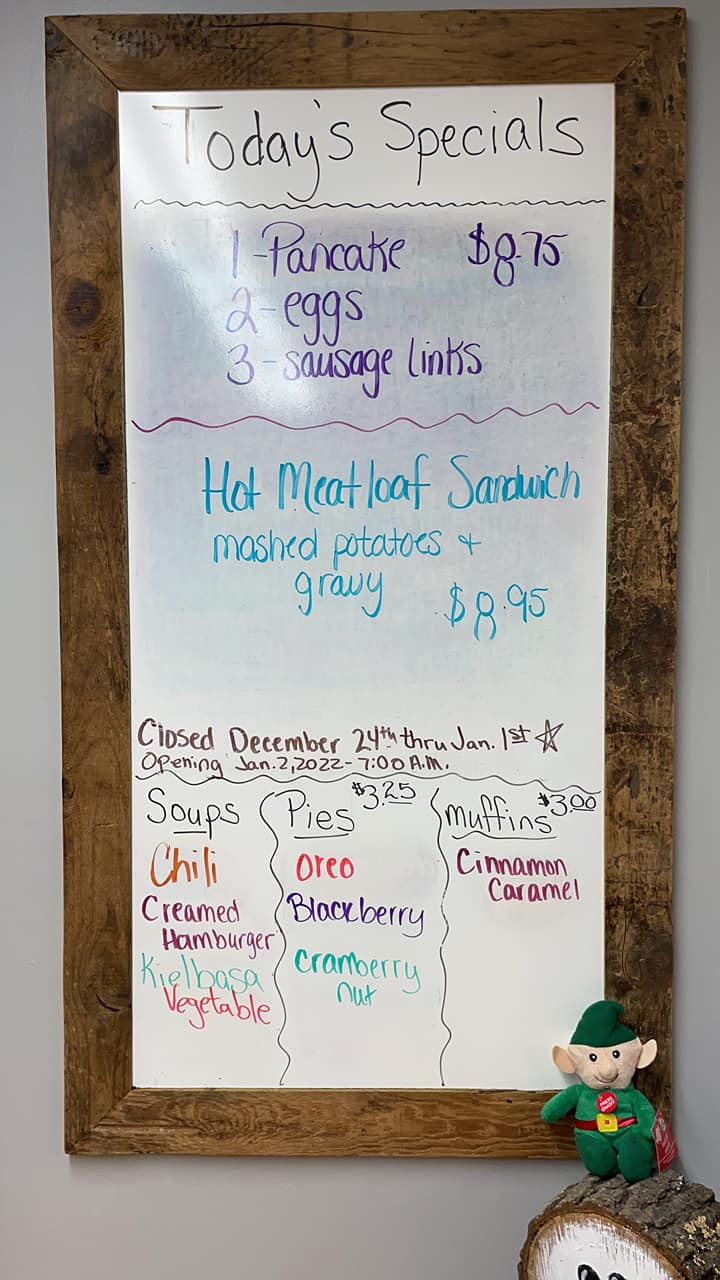 Today's Specials
1-Pancake $8.75
2-eggs
3-sausage links
Hot Meatloaf Sandwich
mashed potatoes +
gravy $8.95
Closed December 24th thru Jan. 1st ☆
Opening Jan. 2, 2022 - 7:00 A.M.
Soups
Chili
Creamed
Hamburger
Kielbasa
Vegetable
Pies $3.25
Oreo
Blackberry
Cramberry
nut
muffins $3.00
Cinnamon
Caramel